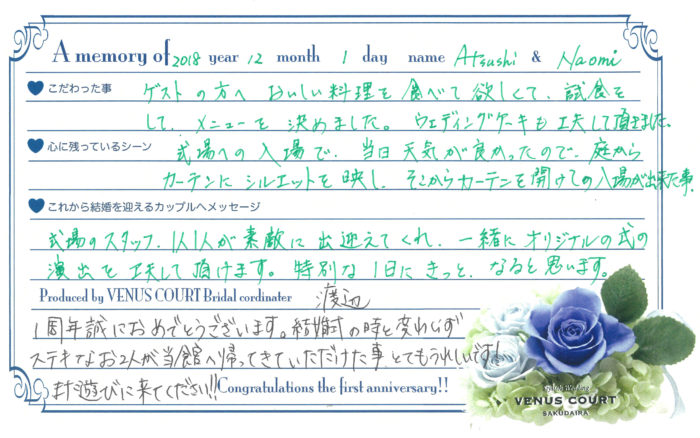 A memory of 2018 year 12 month 1 day name Atsushi & Naomi
こだわった事 ゲストの方へ おいしい料理を食べて欲しくて、試食を
して、メニューを決めました。ウェディングケーキも工夫して頂きました。
心に残っているシーン 式場への入場で、当日天気が良かったので、庭から
カーテンにシルエットを映し、そこからカーテンを開けての入場が出来た事。
これから結婚を迎えるカップルへメッセージ
式場のスタッフ、1人1人が素敵に出迎えてくれ、一緒にオリジナルの式の
演出を工夫して頂けます。特別な1日にきっと、なると思います。
Produced by VENUS COURT Bridal cordinater 渡辺
1周年誠におめでとうございます。結婚式の時と変わらず
ステキなお2人が当館へ帰ってきていただけた事、とてもうれしいです!
また遊びに来てください!! Congratulations the first anniversary!!
VENUS COURT
SAKUDAIRA